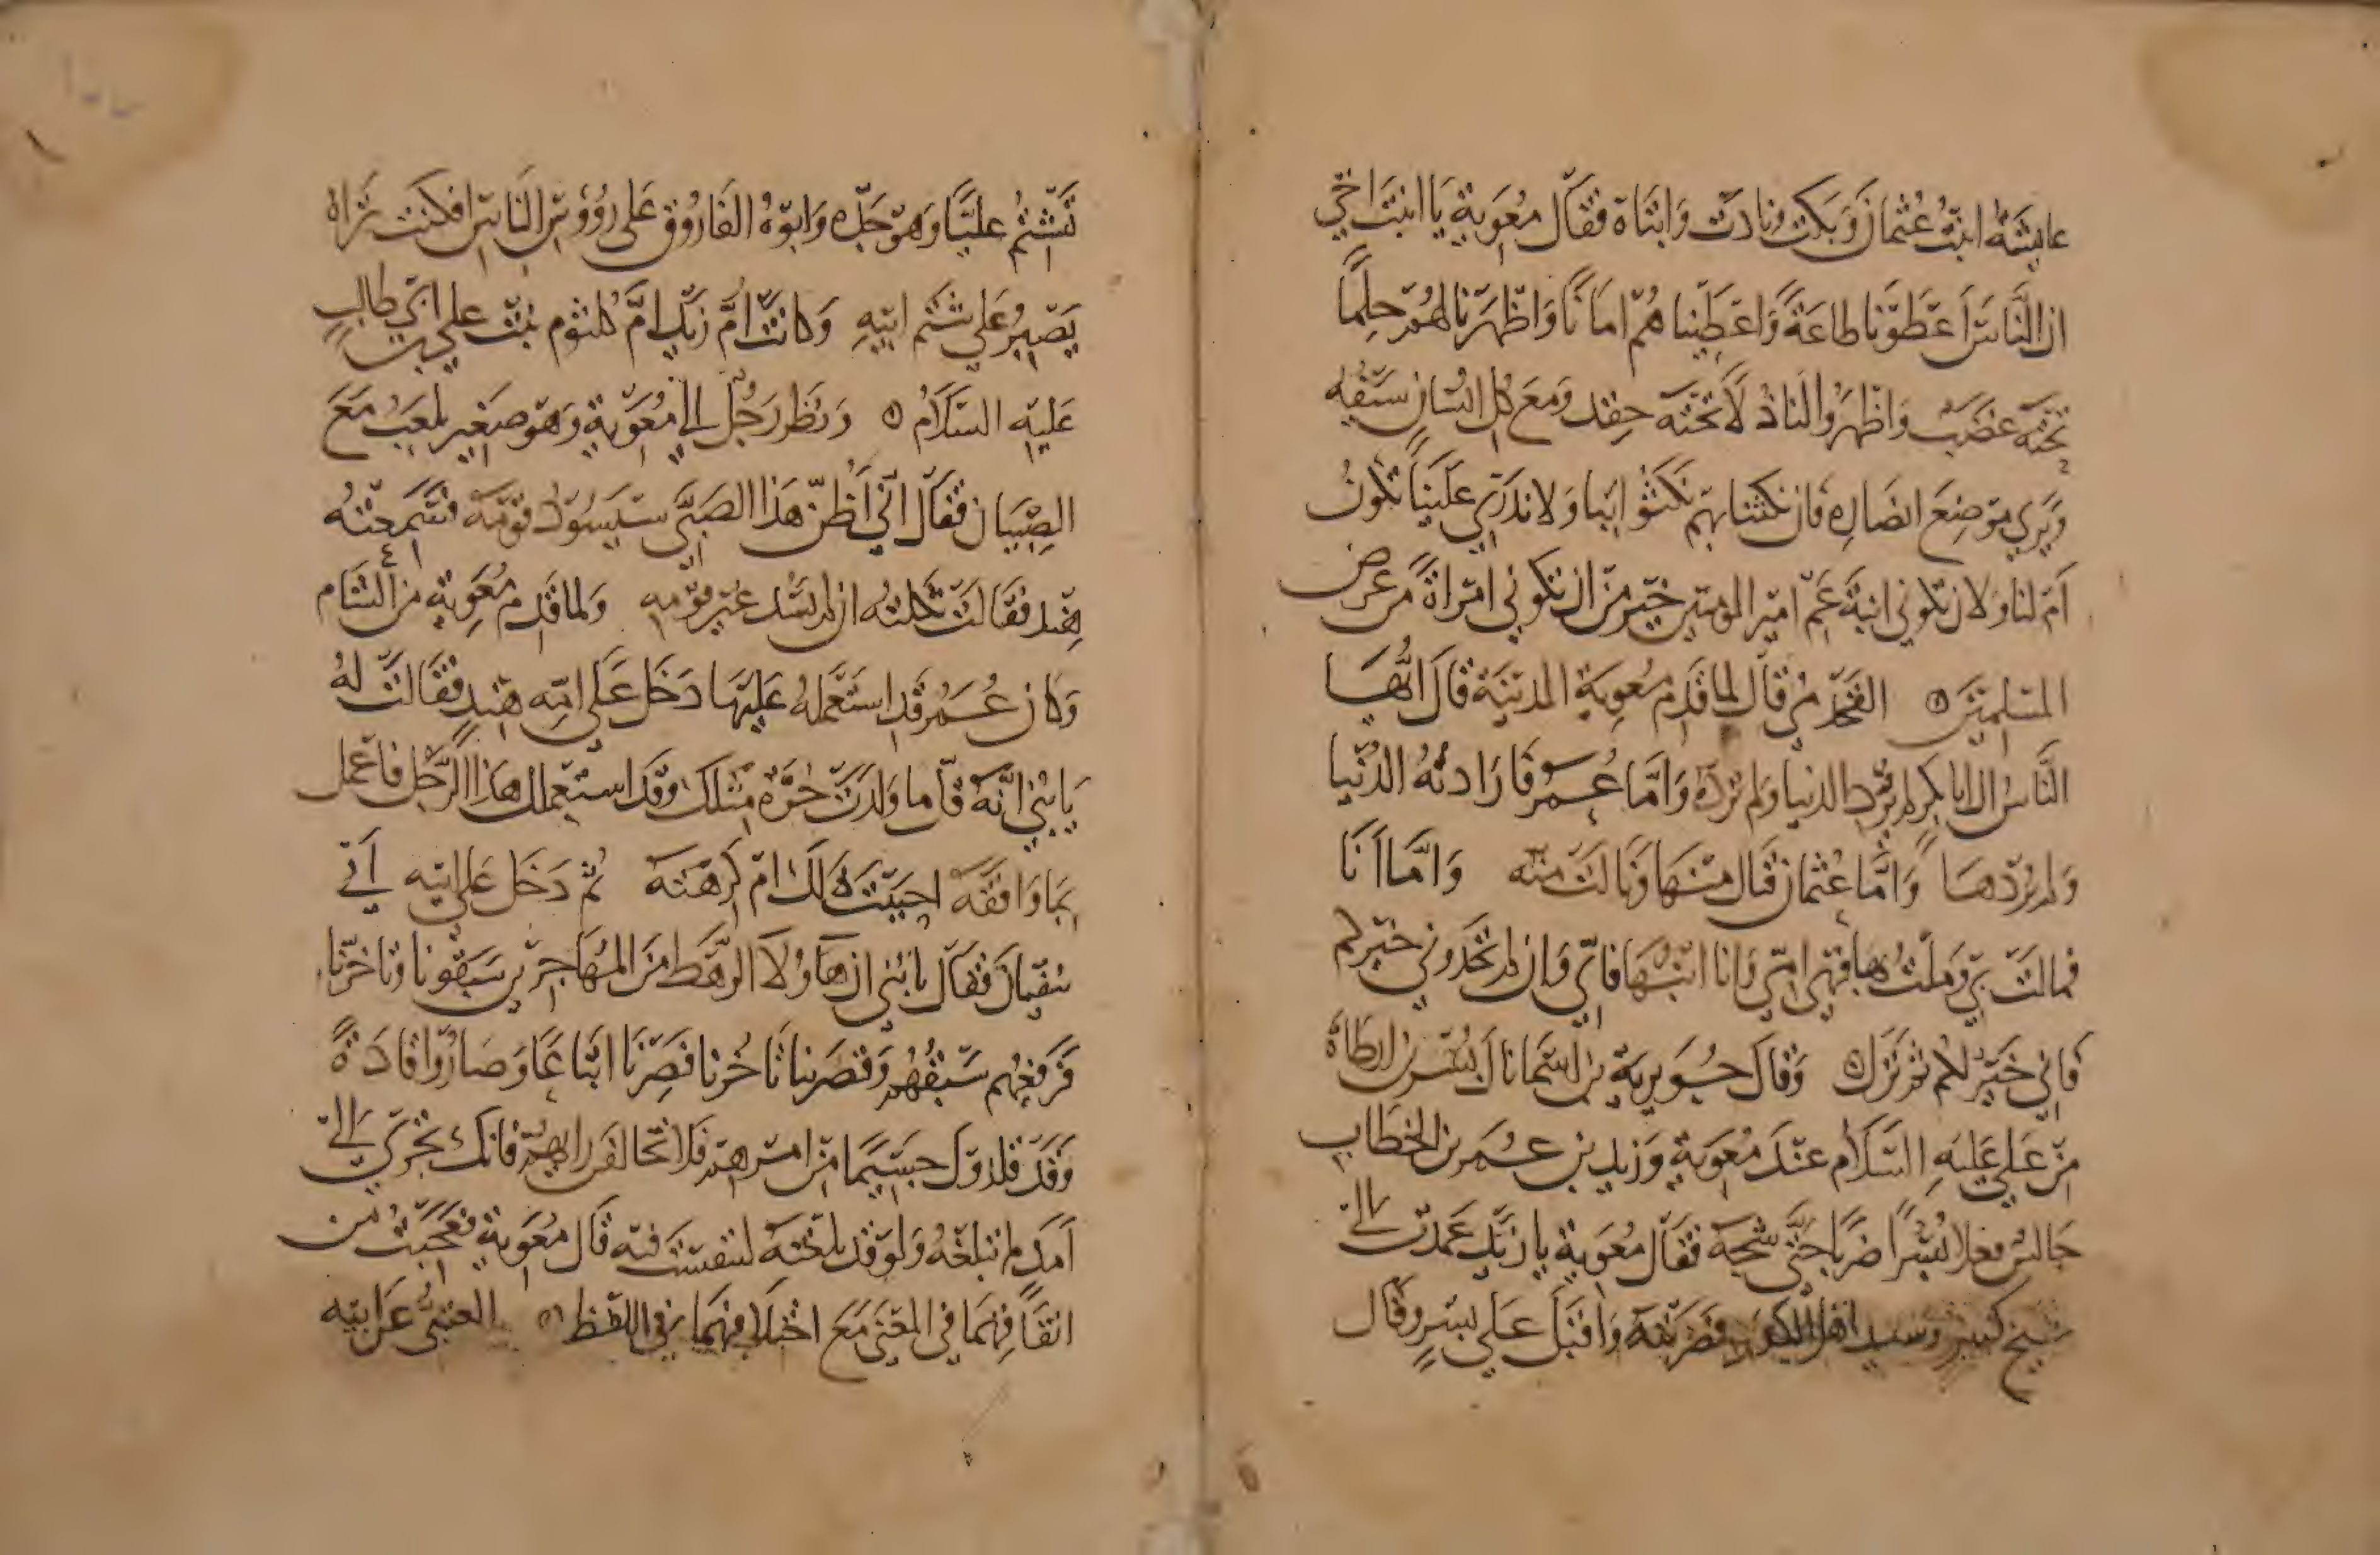 عايشة ابنت عثمان وبكت ونادت وابتاه فقال معوية يا ابنت اخي
ان الناس اعطونا طاعة واعطيناهم امانا واظهرنا لهم حلما
تحته غضب واظهروا لنا ذلا تحته حقد ومع كل انسان سيفه
ويري موضع انصاره فان نكثنا بهم نكثوا بنا ولا ندري علينا تكون
ام لنا ولان تكوني ابنة عم امير المومنين خير من ان تكوني امراة من عرض
المسلمين ه القحذمي قال لما قدم معوية المدينة قال ايها
الناس ان ابا بكر لم يرد الدنيا ولم ترده واما عمر فارادته الدنيا
ولم يردها واما عثمان فنال منها ونالت منه واما انا
فمالت بي وملت بها فهي امي وانا ابنها فاني وان لم تجدوني خيركم
فاني خير لكم ثم نزل ه وقال جويرية بن اسما نال بسر بن ارطاة
من علي عليه السلام عند معوية وزيد بن عمر بن الخطاب
جالس فعلا بسرا ضربا حتي شجه فقال معوية يا زيد عمدت الي
شيخ كبير وسيد اهل فضربته واقبل علي بسر وقال
تشتم عليا وهو جده وابوه الفاروق علي رووس الناس افكنت تراه
يصبر علي شتم ابيه وكانت ام زيد ام كلثوم بنت علي بن ابي طالب
عليه السلام ه ونظر رجل الي معوية وهو صغير يلعب مع
الصبيان فقال اني اظن هذا الصبي سيسود قومه فسمعته
هند فقالت ثكلته ان لم يسد غير قومه ولما قدم معوية من الشام
وكان عمر قد استعمله عليها دخل علي امه هند فقالت له
يا بني انه قل ما ولدت حرة مثلك وقد استعملك هذا الرجل فاعمل
بما وافقه احببت ذلك ام كرهته ثم دخل علي ابيه ابي
سفيان فقال يا بني ان هاولا الرهط من المهاجرين سبقونا وتاخرنا
فرفعهم سبقهم وقصر بنا تاخرنا فصرنا اتباعا وصاروا قادة
وقد قلدوك جسيما من امرهم فلا تخالفن رايهم فانك تجري الي
امد لم تبلغه ولو قد بلغته لتنفست فيه قال معوية فعجبت من
اتفاقهما في المعني مع اختلافهما في اللفظ ه العتبي عن ابيه